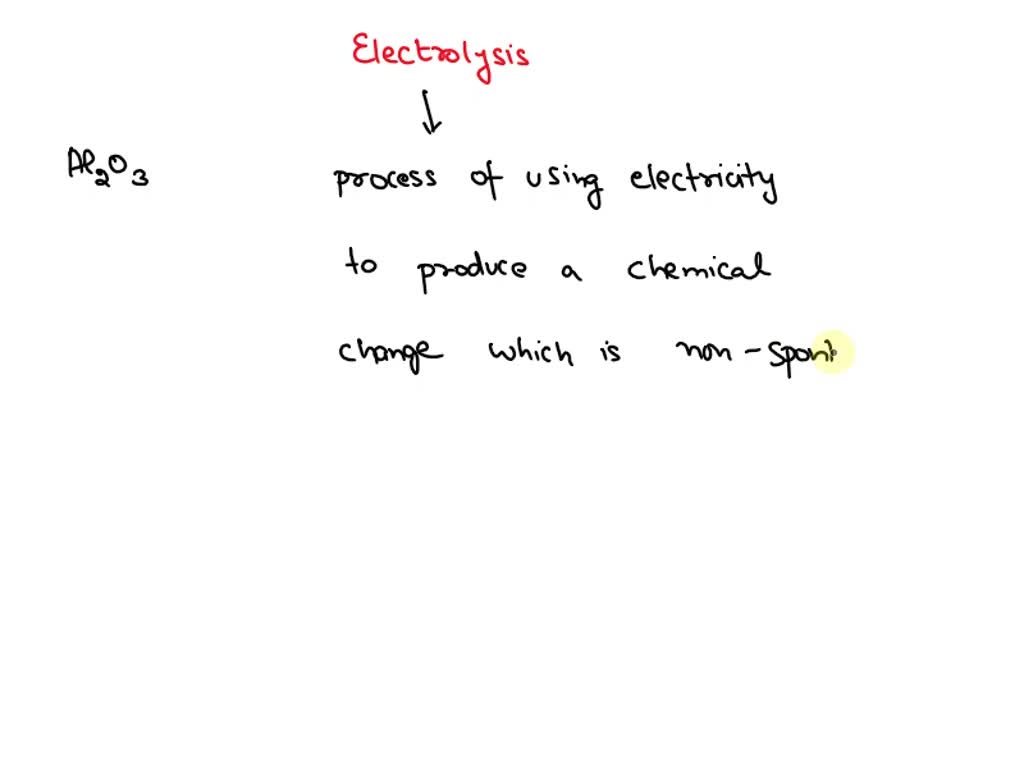 Electrolysis
↓
Al2O3
process of using electricity
to produce a chemical
change which is non-spont